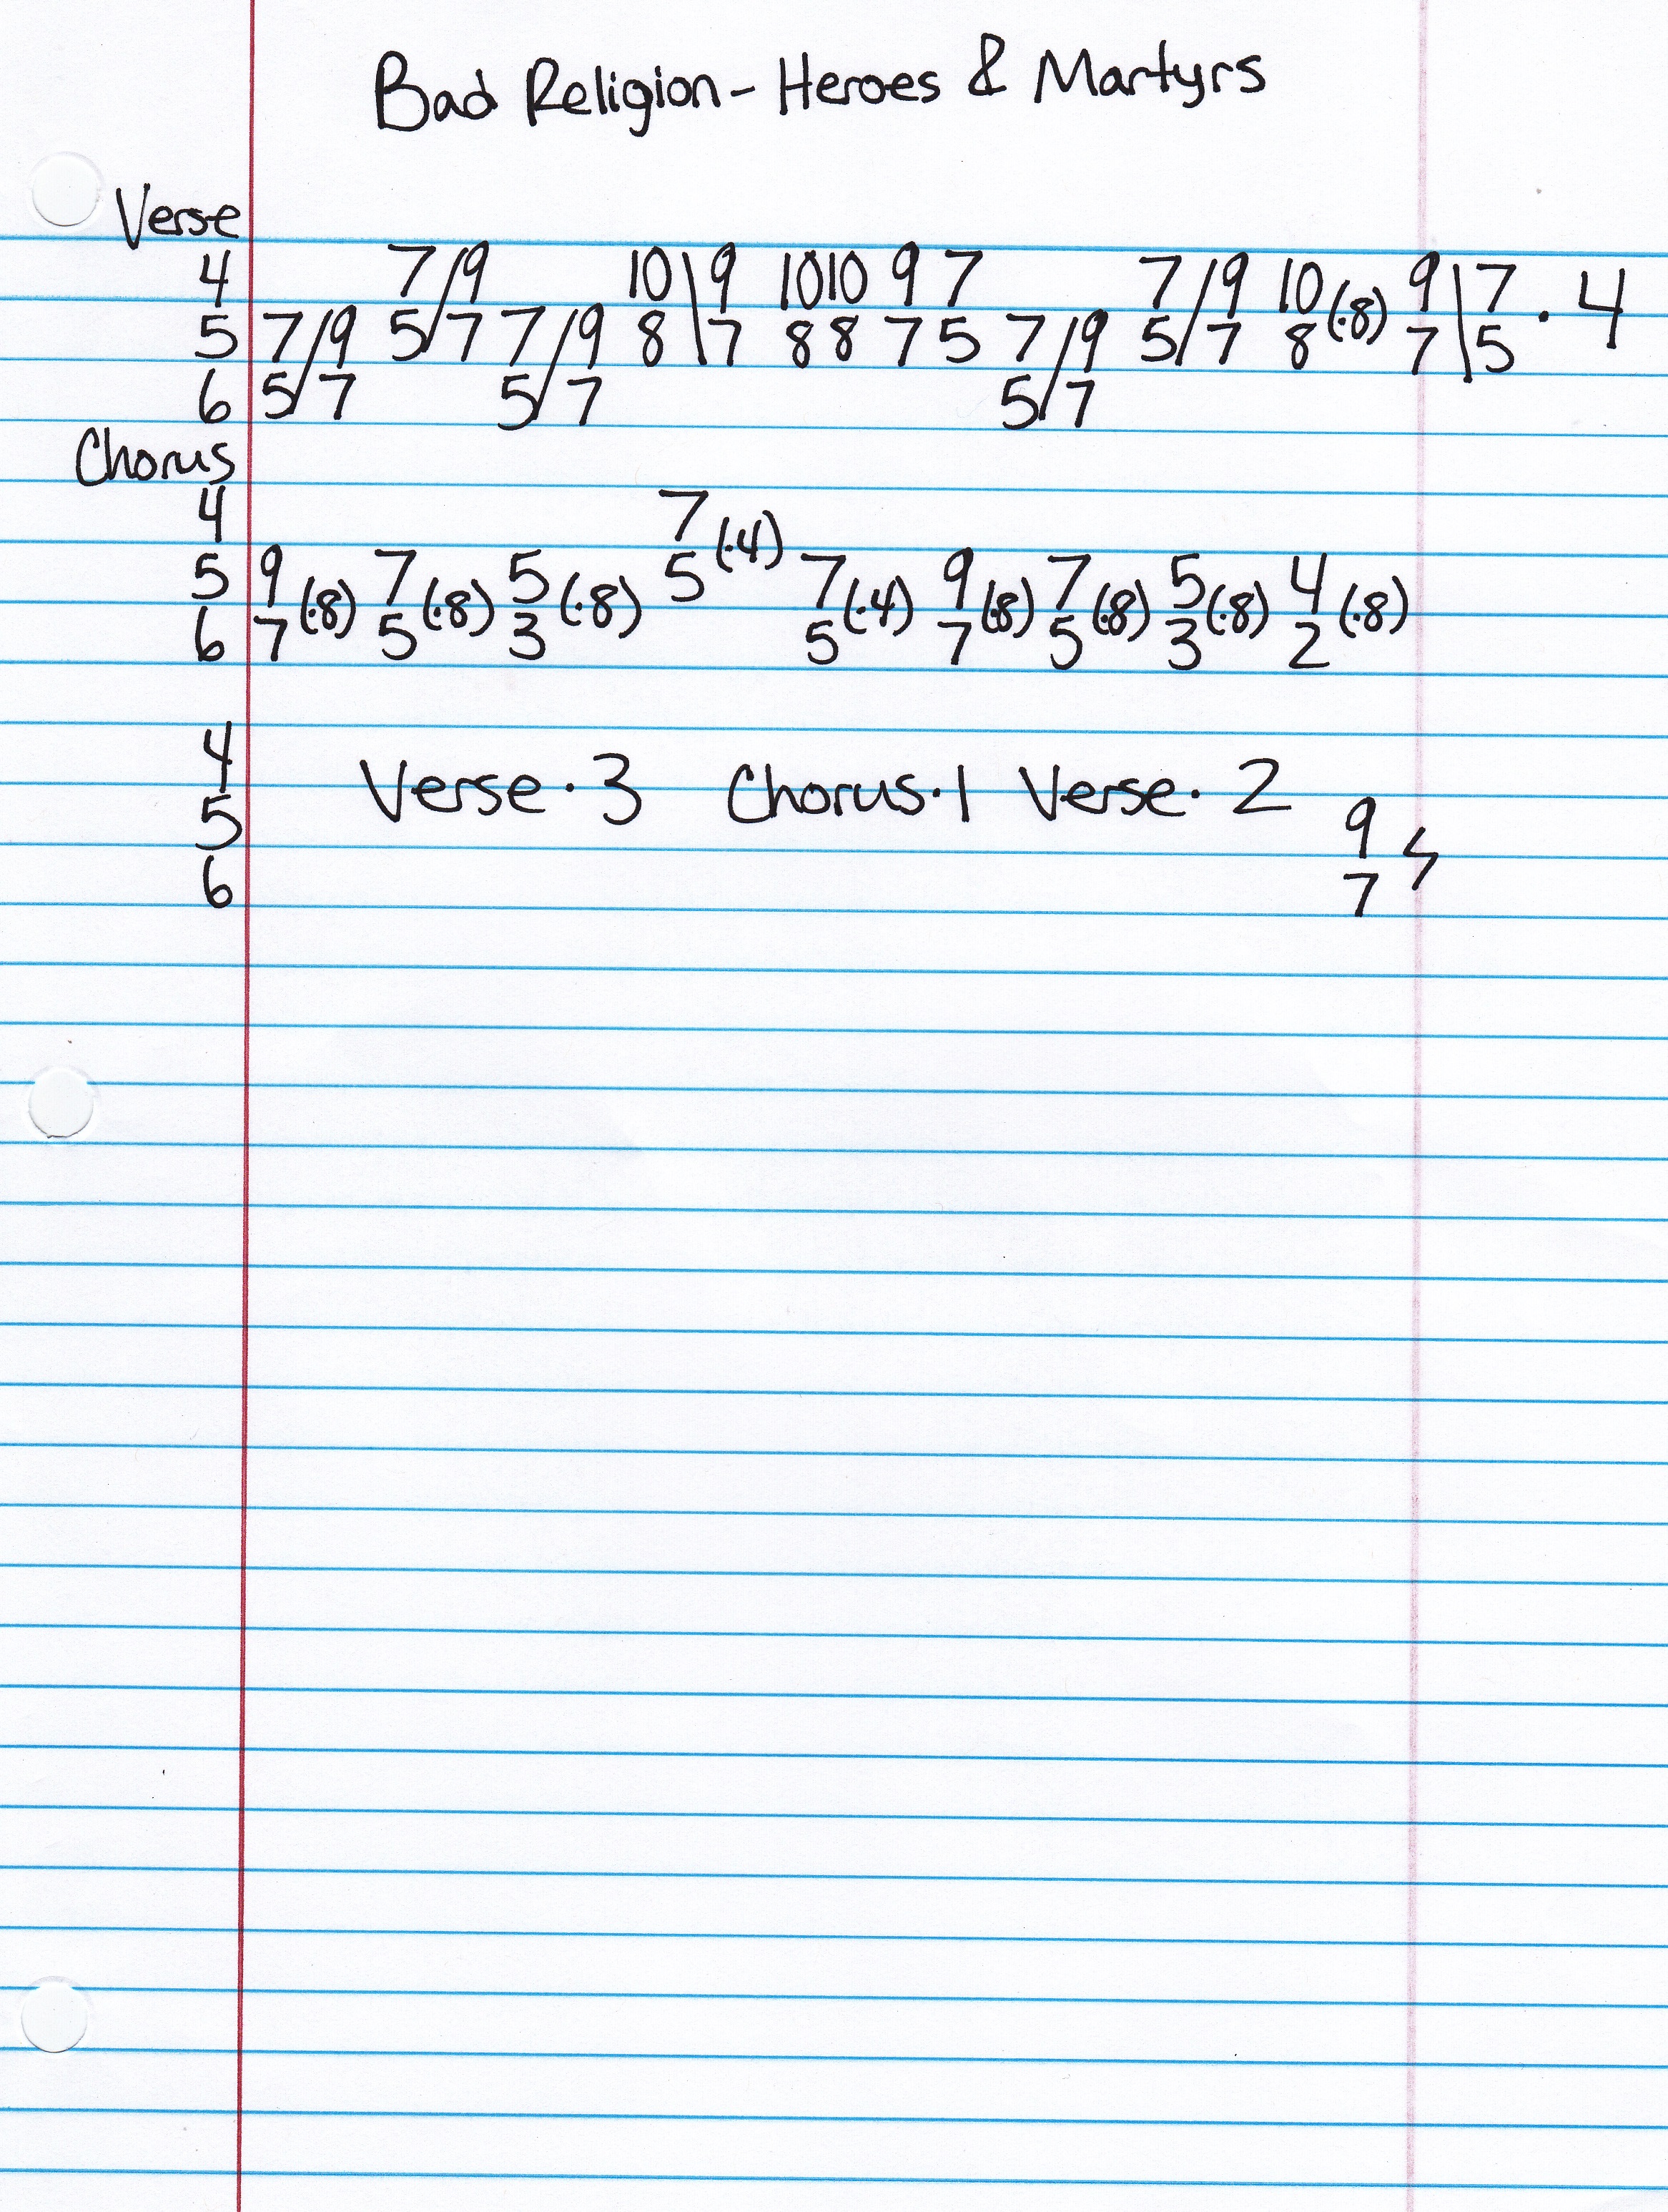 Bad Religion - Heroes & Martyrs
Verse
4 7/9 10\9 10 10 9 7 7/9 10 9\7
5 7/9 5/7 7/9 8\7 8 8 7 5 7/9 5/7 8 (·8) 7\5 · 4
6 5/7 5/7 5/7
Chorus
4 7
5 9 7 5 5 (·4) 7 9 7 5 4
6 7 (·8) 5 (·8) 3 (·8) 5 (·4) 7 (·8) 5 (·8) 3 (·8) 2 (·8)
4
5 Verse · 3 Chorus · 1 Verse · 2 9
6 7